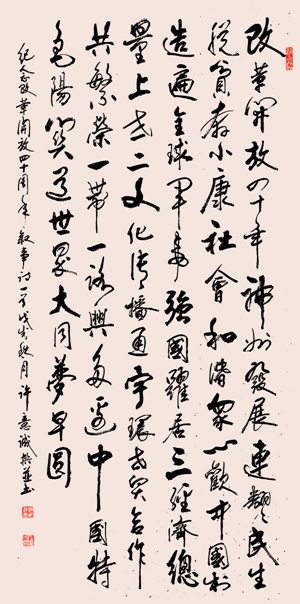 改革開放四十年神州發展連翩民生
脱貧奔小康社會和諧衆心歡中國制
造遍全球軍事強國躍居三經濟總
量上老二文化傳播通宇環商貿合作
共繁榮一帶一路興多邊中國特
色陽關道世界大同夢早圓
紀念改革開放四十周年叙事詩一首戊戌秋月許意誠撰并書